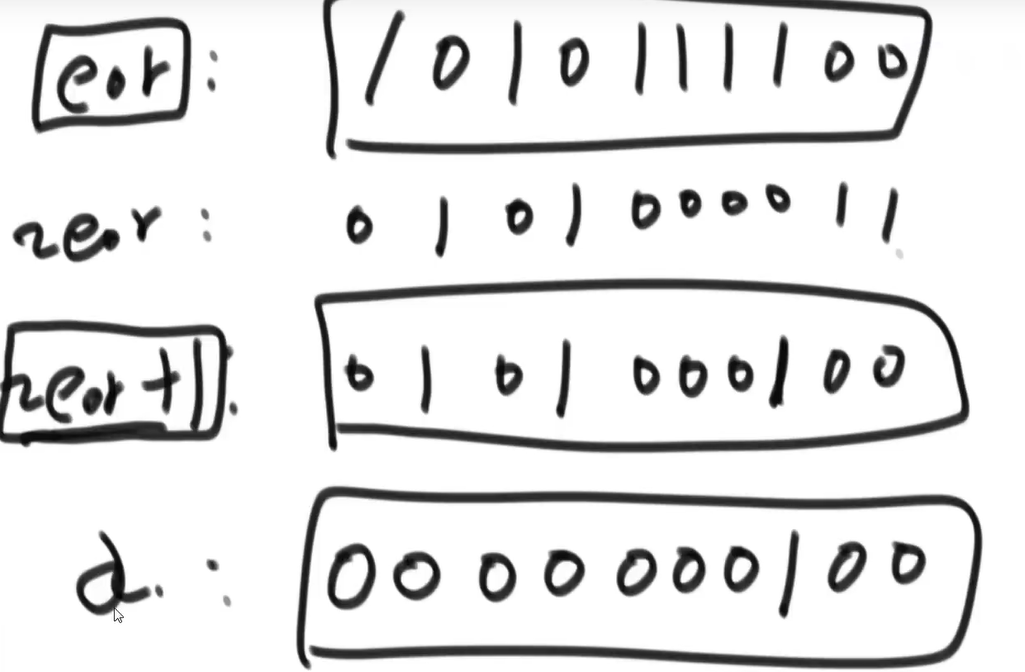 eor : 1010111100
~eor : 0101000011
~eor+1 : 0101000100
d : 0000000100